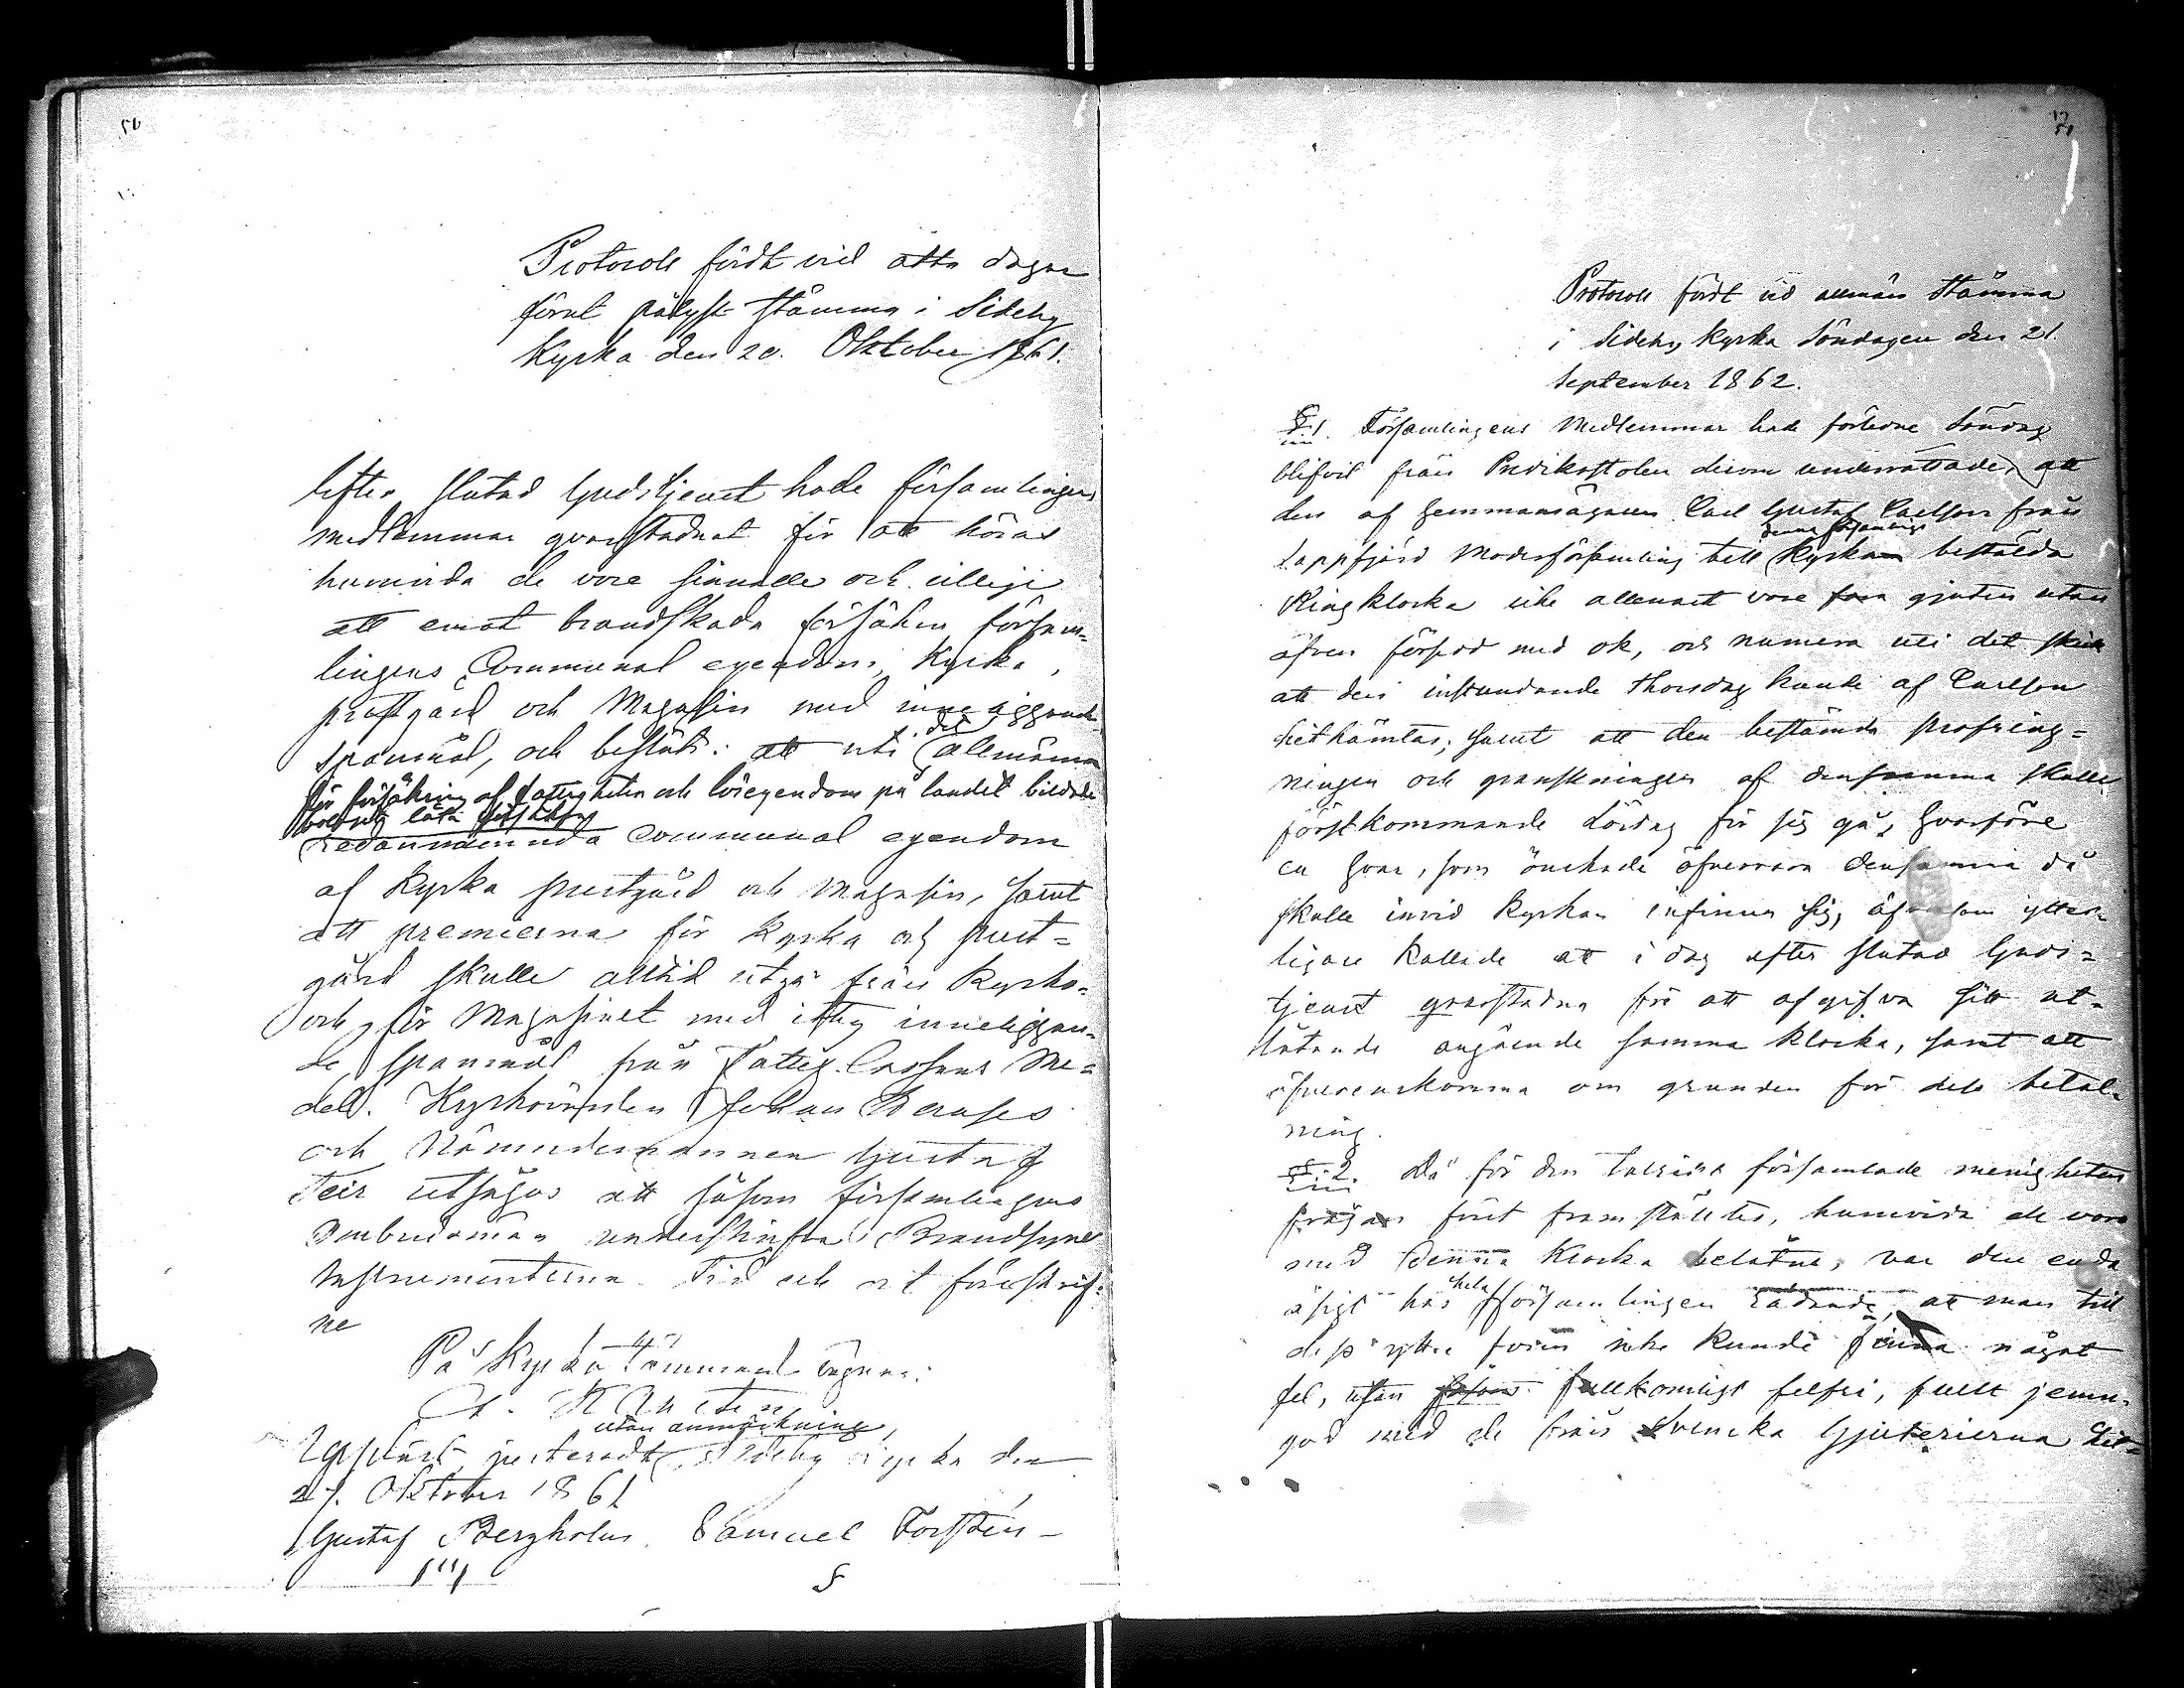 50
Protocoll fördt vid åtta dagar
förut pålyst stämma i Sideby
Kyrka den 20. Oktober 1861.
Efter slutad Gudstjenst hade församlingens
medlemmar qvarstadnat för att höras
huruvida de vore sinnade och villige
att emot brandskada försäkra försam=
lingens Communal egendom, Kyrka,
prestgård och Magasin med inneliggande
spanmål, och beslöts: att uti det allmänna
för försäkring af fastigheter och lösegendom på landet bildade
bolag låta försäkra
redannämnda Communal egendom
af Kyrka prestgård och Magasin, samt
att premierna för Kyrka och prest=
gård skulle alltid utgå från Kyrko=
och för Magasinet med ity inneliggan=
de spanmål från Fattig Cassans Me=
del. Kyrkovärden Johan
och Nämndemannen Gustaf
Teir utsågos att såsom församlingens
Ombudsmän underskrifva Brandsyns
Instrumenterna. Tid och ort föreskrif=
ne
På Kyrko Kommunens vägnar:
Uppläst, justeradt utan anmärkning, i Sideby Kyrka den
27. Oktober 1861
Gustaf Bergholm. Samuel Forsten
51
Protocoll fördt vid allmän Stämma
i Sideby Kyrka Söndagen den 21.
September 1862.
§ 1. Församlingens Medlemmar hade förledne Söndag
blifvit från Predikstolen derom underrättade, att
den af Hemmansägaren Carl Gustaf Carlson från
Lappfjärd Moderförsamling till denna församlings Kyrka beställda
Ringklocka icke allenast vore gjuten utan
äfven försedd med ok, och numera uti det skick
att den instundande Thorsdag kunde af Carlson
hit hämtas; samt att den bestämda profring=
ningen och granskningen af densamma skulle
förstkommande Lördag för sig gå, hvarföre
en hvar, som önskade öfvervara densamma då
skulle invid Kyrkan infinna sig, äfvensom ytter=
ligare kallade att i dag efter slutad Guds=
tjenst qvarstadna för att afgifva sitt ut=
låtande angående samma klocka, samt att
öfverenskomma om grunden för dess betal=
ning.
§ 2. Då för den talrika församlade menigheten
frågan först framställdes, huruvida de voro
med denna Klocka belåtne, var den enda
åsigt hos hela församlingen rådande, att man till
dess yttre form icke kunde finna något
fel, utan fullkomligt felfri, fullt jemn=
god med de från Svenska Gjuterierna hit=